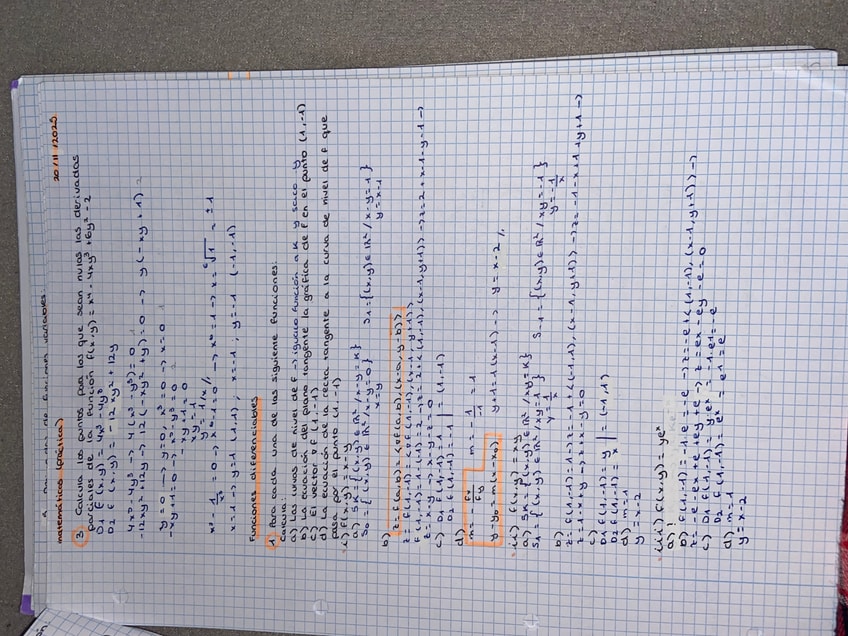 de funciones variables.
matemáticas (práctica) 20/11/2025
3 Calcula los puntos para los que sean nulas las derivadas
parciales de la función f(x,y) = x⁴ - 4xy³ + 6y² - 2
D1 f (x,y) = 4x³ - 4y³
D2 f (x,y) = -12xy² + 12y
4x³ - 4y³ → 4(x³ - y³) = 0
-12xy² + 12y → 12(-xy² + y) = 0 → y(-xy + 1) =
y = 0 → y = 0, x³ = 0 → x = 0
-xy + 1 = 0 → x³ - y³ = 0
-xy = -1
xy = 1
y = 1/x //
x³ - 1/x³ = 0 → x⁶ - 1 = 0 → x⁶ = 1 → x = ⁶√1 = ±1
x = 1 → y = 1 (1,1) ; x = -1 ; y = -1 (-1,-1)
Funciones diferenciables
1. Para cada una de las siguiente funciones.
Calcula:
a) Las curvas de nivel de f → igualo función a K y saco y
b) La ecuación del plano tangente la gráfica de f en el punto (1,-1)
c) El vector ∇f (1,-1)
d) La ecuación de la recta tangente a la curva de nivel de f que
pasa por el punto (1,-1)
i) f(x,y) = x-y
a) SK = {(x,y) ∈ R² / x-y = K}
S0 = {(x,y) ∈ R² / x-y = 0} S1 = {(x,y) ∈ R² / x-y = 1}
x = y y = x-1
b) z = f(a,b) + <∇f(a,b), (x-a, y-b)>
z = f(1,-1) + <∇f(1,-1), (x-1, y+1)>
z = f(1,-1) = 1-(-1) = 2 → z = 2 + <(1,-1), (x-1, y+1)> → z = 2 + x-1-y-1 →
z = x-y → x-y-z = 0
c) D1 f(1,-1) = 1 | (1,-1)
D2 f(1,-1) = -1
d) m = - fx/fy m = - 1/-1 = 1
y-y0 = m(x-x0) y+1 = 1(x-1) → y = x-2 //
ii) f(x,y) = xy
a) SK = {(x,y) ∈ R² / xy = K}
S1 = {(x,y) ∈ R² / xy = 1} S-1 = {(x,y) ∈ R² / xy = -1}
y = 1/x y = -1/x
b)
z = f(1,-1) = 1 → z = -1 + <(-1,1), (x-1, y+1)> → z = -1 -x+1 +y+1 →
z = 1-x+y → z+x-y = 0
c)
D1 f(1,-1) = y | = (-1,1)
D2 f(1,-1) = x
d) m = 1
y = x-2
iii) f(x,y) = yeˣ
a) !
b) f(1,-1) = -1·e = -e → z = -e + <(1,-1), (x-1, y+1)> →
z = -e -ex +e +ey +e → z = ex - ey - e = 0
c) D1 f(1,-1) = y·eˣ = -1·e1 = -e
D2 f(1,-1) = eˣ = e1 = e
d) m = 1
y = x-2